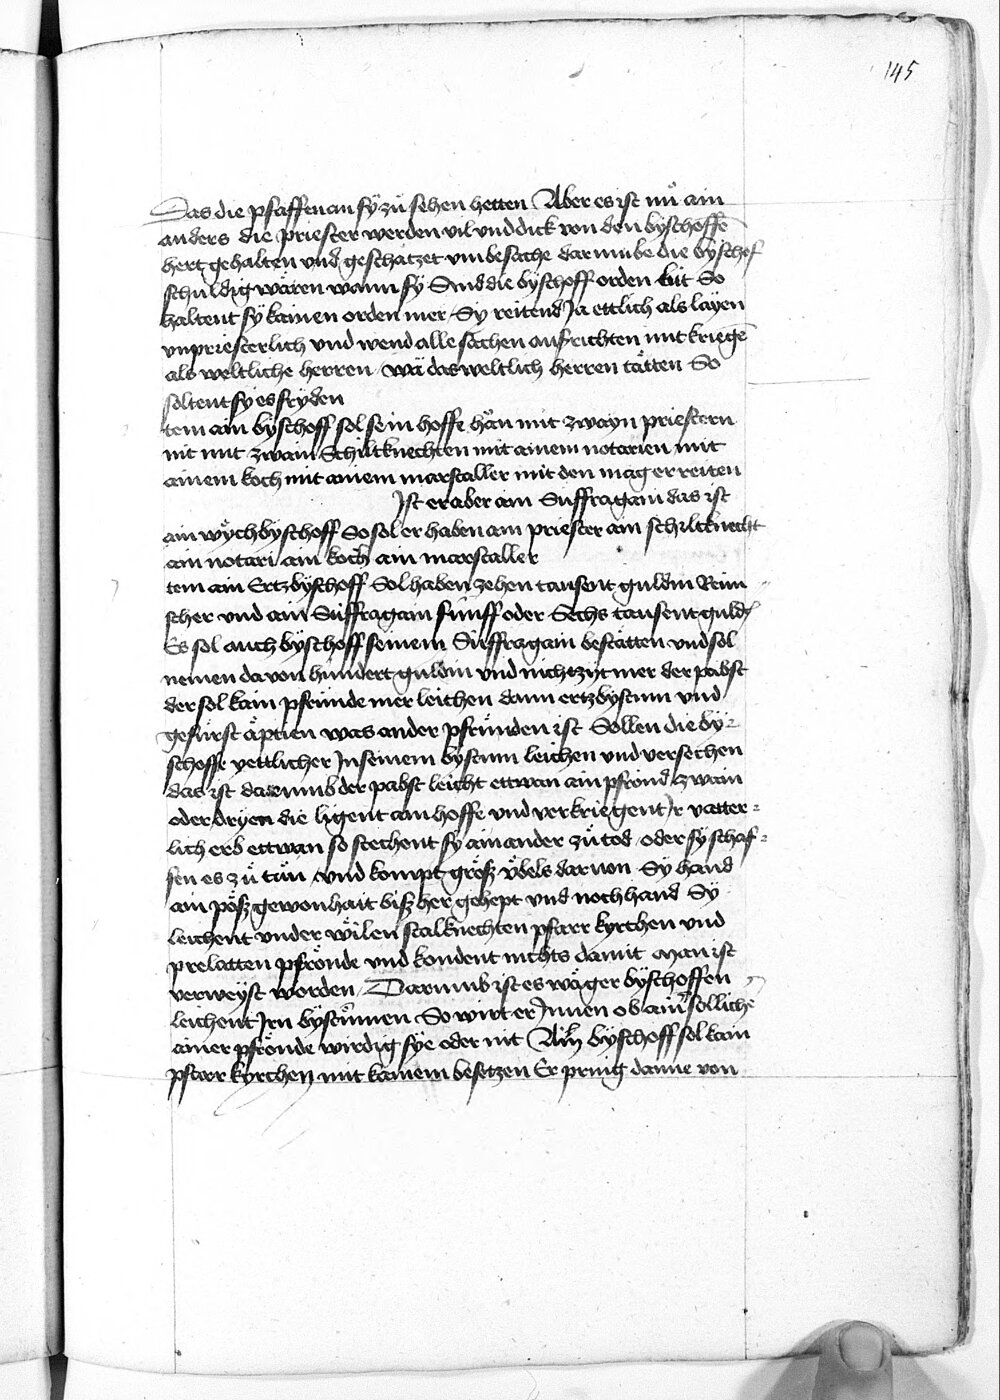 145
Das die pfaffen an sÿ zů sehen hetten Aber es ist nu ain
anders die priester werden vil vnd dick von den bÿschoffe
hert gehalten vnd geschatzet vmb sache darumbe die bÿschof
schuldig wären wann sÿ Sind die bÿschoff orden lüt So
haltent sÿ kainen orden mer Sy reitend Ja ettlich als laÿen
vnpriesterlich vnd wend alle sachen ausrichten mit kriege
als weltliche herren / wä das weltlich herren tätten So
soltent sÿ es fryden
tem ain bÿschoff sol sein hoffe hän mit zwayn priestern
nit mit zwain Schiltknechten mit ainem notarien mit
ainem koch mit ainem marstaller mit den mag er reiten
Ist er aber ain Suffragain das ist
ain wÿchbyschoff So sol er haben ain priester ain schiltknecht
ain notari ain koch ain marstaller
tem ain Ertzbyschoff Sol haben zehen tausent guldin Rini
scher vnd ain Suffragain fünff oder Sechs tausent guld
Es sol auch bÿschoff seinem Suffragain bestätten vnd sol
nemen da von hundert guldin vnd nichtzyt mer der pabst
der sol kain pfründe mer leichen dann ertzbystum vnd
gefürst äptien was ander pfründen ist Sollen die bÿ-
schoffe yettlicher In seinem bystum leichen vnd versechen
das ist darumb der pabst leicht ettwan ain pfrönd zwain
oder dryen die ligent am hoffe vnd verkriegent Ir vatter-
lich erb ettwan so stechent sy ainander zů tod oder sy schaf-
fen es zů tůn vnd kompt größ vbels daruon Sÿ hand
ain pöß gewonhait biß her gehept vnd noch hand Sÿ
leichent vnder wÿlen stalknechten pfarr kyrchen vnd
prelatten pfrönde vnd kondent nichts damit man ist
verweyst worden / Darumb ist es wäger bÿschoffen
leichent Irn bystumen So wirt er Innen ob ainer solliche
ainer pfrönde wirdig sÿe oder nit Ain bÿschoff sol kain
pfarr kyrchen mit kainem besetzen Er pring danne von